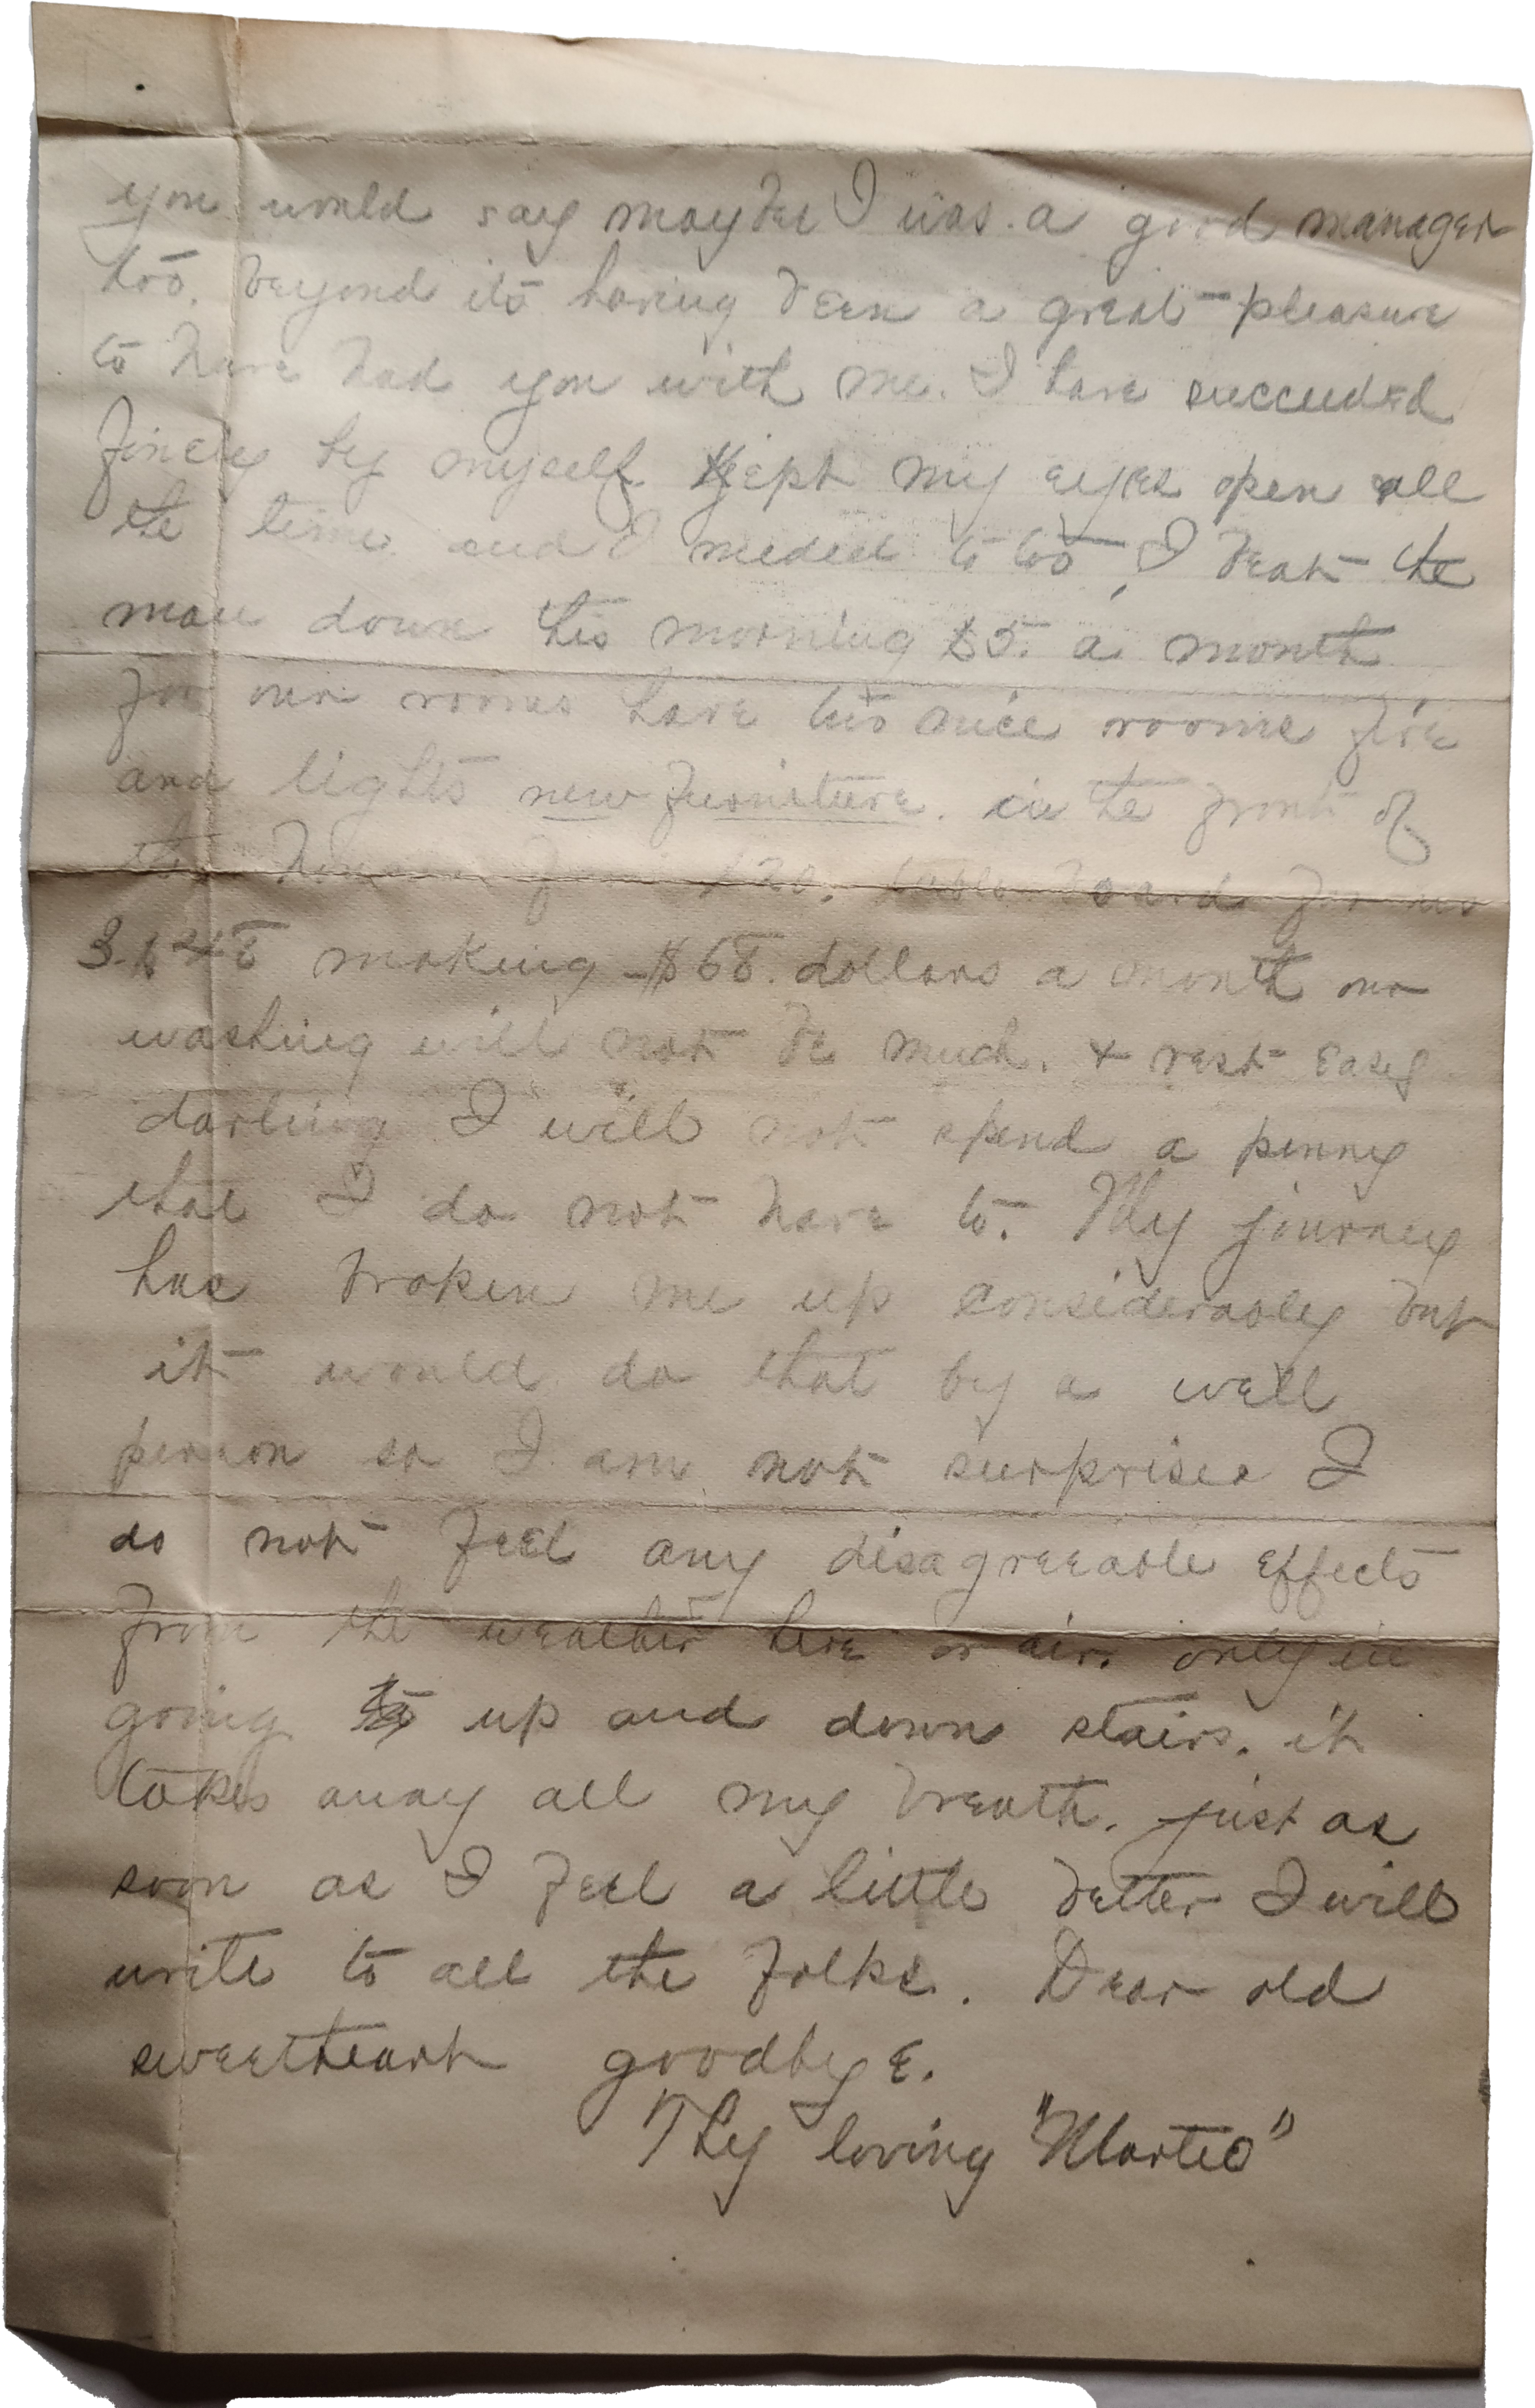 you would say maybee I was a good manager
too. beyond its having been a great pleasure
to have had you with me. I have succeeded
finely by myself. Kept my eyes open all
the time and I needed to too, I beat the
man down this morning $5. a month
for our rooms have two nice rooms fire
and lights new furniture. in the front of
the $20. table board for us
3. $48 making $68. dollars a month our
washing will not be much. + rest easy
darling I will not spend a penny
that I do not have to. My journey
has broken me up considerably but
it would do that by a well
person so I am not surprised I
do not feel any disagreeable effects
from the weather here or air. only in
going up and down stairs. it
takes away all my breath. just as
soon as I feel a little better I will
write to all the folks. Dear old
sweetheart goodbye.
Thy loving "Marteo"